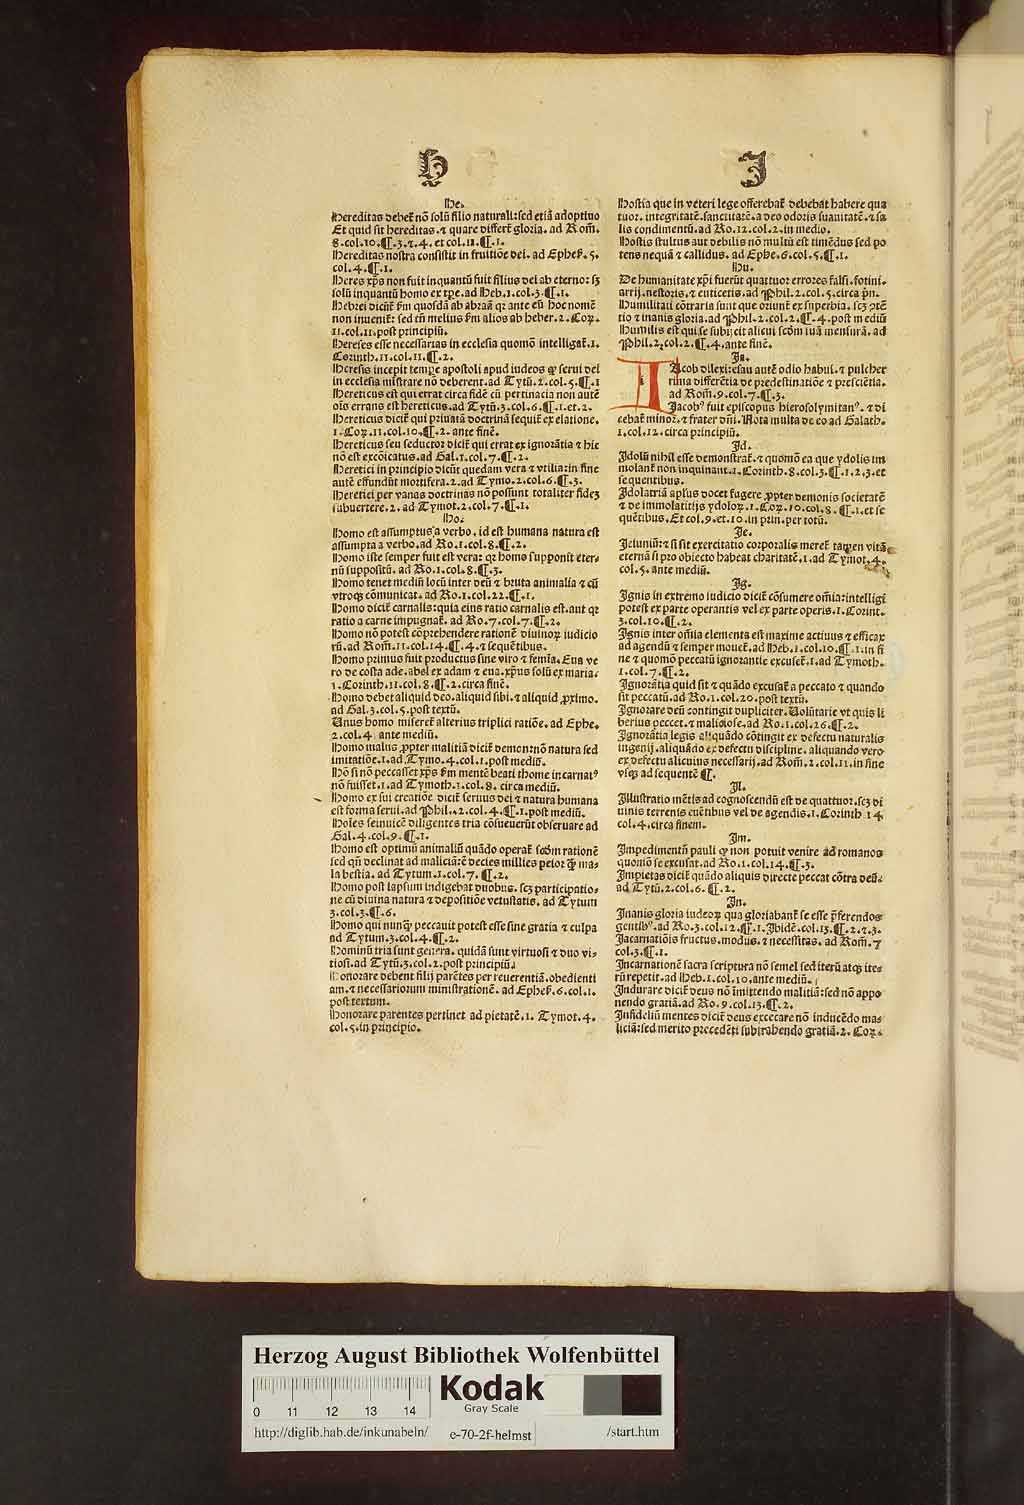 H
He.
Hereditas debet̄ nō solū filio naturali: sed etiā adoptiuo
Et quid sit hereditas. ⁊ quare differt̄ gloria. ad Rom̄.
8.col.10.¶.3.⁊.4. et col.11.¶.1.
Hereditas nostra consistit in fruitiōe dei. ad Ephes̄.5.
col.4.¶.1.
Heres xp̄s non fuit inquantū fuit filius dei ab eterno: sꝫ
solū inquantū homo ex tp̄e. ad Heb.1.col.3.¶.1.
Hebrei dicūt̄ s̄m quosdā ab abraā qꝛ ante eū hoc nomē
non inuenit̄: sed eū melius s̄m alios ab heber.2. Coꝝ.
11.col.11.post principiū.
Hereses esse necessarias in ecclesia quomō intelligat̄.1.
Corinth.11.col.11.¶.2.
Heresis incepit tempꝛe apostoli apud iudeos qꝫ serui dei
in ecclesia mīstrare nō deberent. ad Tytū.2.col.5.¶.1
Hereticus est qui errat circa fidē cū pertinacia non autē
oīs errans est hereticus. ad Tytū.3.col.6.¶.1.et.2.
Hereticus dicit̄ qui priuatā doctrinā sequit̄ ex elatione.
1.Coꝝ.11.col.10.¶.2. ante finē.
Hereticus seu seductor dicit̄ qui errat ex ignorātia ⁊ hic
nō est excōicatus. ad Gal.1.col.7.¶.2.
Heretici in principio dicūt quedam vera ⁊ vtilia: in fine
autē effundūt mortifera.2.ad Tymo.2.col.6.¶.3.
Heretici per vanas doctrinas nō possunt totaliter fideꝫ
subuertere.2. ad Tymot.2.col.7.¶.1.
Ho.
Homo est assumptus a verbo. id est humana natura est
assumpta a verbo. ad Ro.1.col.8.¶.2.
Homo iste semper fuit est vera: qꝛ homo supponit eter-
nū suppositū. ad Ro.1.col.8.¶.3.
Homo tenet mediū locū inter deū ⁊ bruta animalia ⁊ cū
vtroqꝫ cōmunicat. ad Ro.1.col.22.¶.1.
Homo dicit̄ carnalis: quia eius ratio carnalis est. aut qꝛ
ratio a carne impugnat̄. ad Ro.7.col.7.¶.2.
Homo nō potest cōprehendere rationē diuinoꝝ iudicio
rū. ad Rom̄.11.col.14.¶.4.⁊ sequētibus.
Homo primus fuit productus sine viro ⁊ femīa. Eua ve
ro de costa ade. abel ex adam ⁊ eua. xp̄us solū ex maria.
1.Corinth.11.col.8.¶.2.circa finē.
Homo debet aliquid deo. aliquid sibi. ⁊ aliquid ꝓximo.
ad Gal.3.col.5.post textū.
Unus homo miseret̄ alterius triplici ratiōe. ad Ephe.
2.col.4. ante mediū.
Homo malus ꝓpter malitiā dicit̄ demon: nō natura sed
imitatiōe.1.ad Tymo.4.col.1.post mediū.
Hō si nō peccasset xp̄s s̄m mentē beati thome incarnatꝰ
nō fuisset.1.ad Tymoth.1.col.8. circa mediū.
Homo ex sui creatiōe dicit̄ seruus dei ⁊ natura humana
est forma serui. ad Phil.2.col.4.¶.1.post mediū.
Hoīes seinuicē diligentes tria cōsueuerūt obseruare ad
Gal.4.col.9.¶.1.
Homo est optimū animaliū quādo operat̄ scd̄m rationē
sed qn̄ declinat ad maliciā: ē decies millies peior qꝫ ma-
la bestia. ad Tytum.1.col.7.¶.2.
Homo post lapsum indigebat duobus. scꝫ participatio-
ne cū diuina natura ⁊ depositiōe vetustatis. ad Tytum
3.col.3.¶.6.
Homo qui nunqꝫ peccauit potest esse sine gratia ⁊ culpa
ad Tytum.3.col.4.¶.2.
Hominū tria sunt genera. quidā sunt virtuosi ⁊ duo vi-
tiosi. ad Tytū.3.col.2.post principiū.
Honorare debent filij parētes per reuerentiā. obedienti
am. ⁊ necessariorum ministrationē. ad Ephes̄.6.col.1.
post textum.
Honorare parentes pertinet ad pietatē.1. Tymot.4.
col.5.in principio.
J
Hostia que in veteri lege offerebat̄ debebat habere qua
tuor. integritatē. sanctitatē. a deo odoris suauitatē. ⁊ sa
lis condimentū. ad Ro.12.col.2.in medio.
Hostis stultus aut debilis nō multū est timēdus sed po
tens nequā ⁊ callidus. ad Ephe.6.col.5.¶.1.
Hu.
De humanitate xp̄i fuerūt quattuor errores falsi. fotini.
arrij. nestoris. ⁊ euticetis. ad Phil.2.col.5.circa p̄n.
Humilitati cōtraria sunt que oriunt̄ ex superbia. scꝫ ꝯtē
tio ⁊ inanis gloria. ad Phil.2.col.2.¶.4.post mediū
Humilis est qui se subijcit alicui scd̄m suā mensurā. ad
Phil.2.col.2.¶.4.ante finē.
Ja.
IAcob dilexi: esau autē odio habui. ⁊ pulcher
rima differētia de predestinatiōe ⁊ presciētia.
ad Rom̄.9.col.7.¶.3.
Jacobꝰ fuit episcopus hierosolymitanꝰ. ⁊ di
cebat̄ minor. ⁊ frater dn̄i. Nota multa de eo ad Galath.
1.col.12.circa principiū.
Jd.
Jdolū nihil esse demonstrat̄. ⁊ quomō ea que ydolis im
molant̄ non inquinant.1.Corinth.8.col.3.¶.1.2.3.et
sequentibus.
Jdolatriā aplūs docet fugere ꝓpter demonis societatē
⁊ de immolatitijs ydoloꝝ.1.Coꝝ.10.col.8.¶.1.et se
quētibus. Et col.9.et.10.in prin.per totū.
Je.
Jeiuniū: ⁊ si sit exercitatio corporalis meret̄ tamen vitā
eternā si pro obiecto habeat charitatē.1.ad Tymot.4.
col.5.ante mediū.
Jg.
Jgnis in extremo iudicio dicit̄ cōsumere omīa: intelligi
potest ex parte operantis vel ex parte operis.1.Corint.
3.col.10.¶.2.
Jgnis inter omīa elementa est maxime actiuus ⁊ efficax
ad agendū ⁊ semper mouet̄. ad Heb.1.col.10.¶.1.in fi
ne ⁊ quomō peccatū ignorantie excuset̄.1.ad Tymoth.
1.col.7.¶.2.
Jgnorātia quid sit ⁊ quādo excusat̄ a peccato ⁊ quando
sit peccatū. ad Ro.1.col.20.post textū.
Jgnorare deū contingit dupliciter. Uolūtarie vt quis li
berius peccet. ⁊ maliciose. ad Ro.1.col.26.¶.2.
Jgnorātia legis aliquādo cōtingit ex defectu naturalis
ingenij. aliquādo ex defectu discipline. aliquando vero
ex defectu alicuius necessarij. ad Rom̄.2.col.11.in fine
vsqꝫ ad sequentē ¶.
Jl.
Jllustratio mētis ad cognoscendū est de quattuor. scꝫ di
uinis terrenis euētibus vel de agendis.1.Corinth.14.
col.4.circa finem.
Jm.
Jmpedimentū pauli qꝫ non potuit venire ad romanos
quomō se excusat. ad Ro.1.col.14.¶.3.
Jmpietas dicit̄ quādo aliquis directe peccat cōtra deū.
ad Tytū.2.col.6.¶.2.
Jn.
Jnanis gloria iudeoꝝ qua gloriabant̄ se esse p̄ferendos
gentibꝰ. ad Ro.3.col.12.¶.1. Jbidē.col.13.¶.2.⁊.3.
Jncarnatiōis fructus. modus. ⁊ necessitas. ad Rom̄.7
col.3.¶.1.
Jncarnationē sacra scriptura nō semel sed iterū atqꝫ ite-
rū repetit. ad Heb.1.col.10.ante mediū.
Jndurare dicit̄ deus nō īmittendo malitiā: sed nō appo
nendo gratiā. ad Ro.9.col.13.¶.2.
Jnfideliū mentes dicit̄ deus excecare nō inducēdo ma-
liciā: sed merito precedēti subtrahendo gratiā.2. Coꝝ.
Herzog August Bibliothek Wolfenbüttel
0 11 12 13 14
Kodak
Gray Scale
http://diglib.hab.de/inkunabeln/ e-70-2f-helmst /start.htm